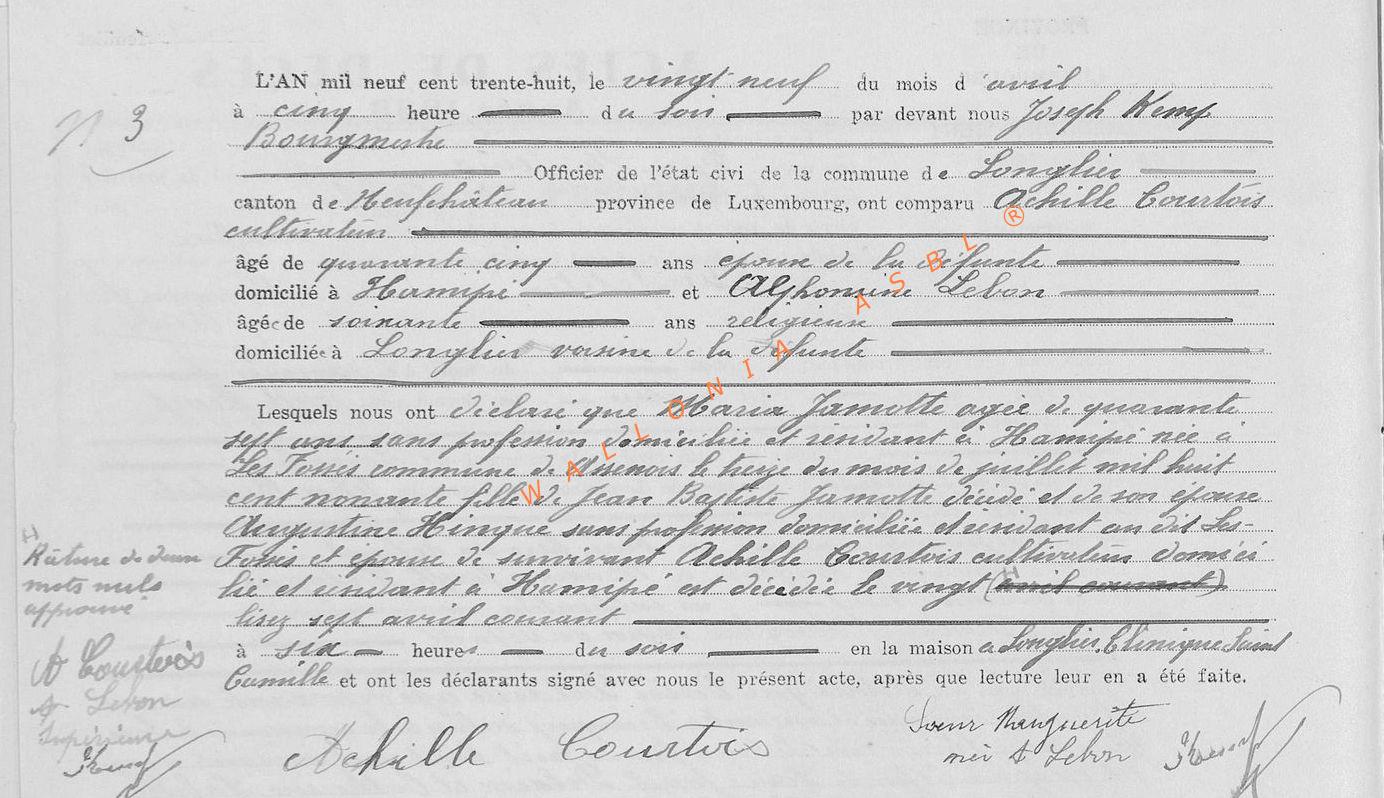 L'AN mil neuf cent trente-huit, le vingt neuf du mois d'avril
N 3
à cinq heure du soir par devant nous Joseph Kemp
Bourgmestre
Officier de l'état civi de la commune de Longlier
canton de Neufchâteau province de Luxembourg, ont comparu Achille Courtois
cultivateur
âgé de quarante cinq ans époux de la défunte
domicilié à Hamipré et Alphonsine Lebon
âgée de soixante ans religieuse
domiciliée à Longlier voisine de la défunte
Lesquels nous ont déclaré que Maria Jamotte agée de quarante
sept ans sans profession domiciliée et résidant à Hamipré née à
Les Fossés commune de Assenois le treize du mois de juillet mil huit
cent nonante fille de Jean Baptiste Jamotte décédé et de son épouse
Augustine Hingue sans profession domiciliée et résidant au dit Les-
Fossés et épouse de survivant Achille Courtois cultivateur domici
lié et résidant à Hamipré est décédée le vingt (avril courant)
lisez sept avril courant
à six heures du soir en la maison a Longlier. Clinique Saint
Camille et ont les déclarants signé avec nous le présent acte, après que lecture leur en a été faite.
H
Râture de deux
mots nuls
approuvé
A Courtois
A Lebon
Supérieure
Kemp
Achille Courtois
Soeur Marguerite
née A Lebon
Kemp
WALLONIA ASBL ®